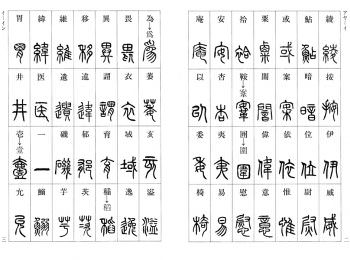 アヤーイ
綾 鮎 或 粟 袷 安 庵
按 暗 案 闇 鞍→案 杏 以
伊 位 依 偉 囲→圍 夷 委
威 尉 惟 意 慰 易 椅
二
イーイン
為→爲 畏 異 移 維 緯 胃
萎 衣 謂 違 遺 医 井
亥 域 育 郁 磯 一 壱→壹
溢 逸 稲→稻 茨 芋 鰯 允
三